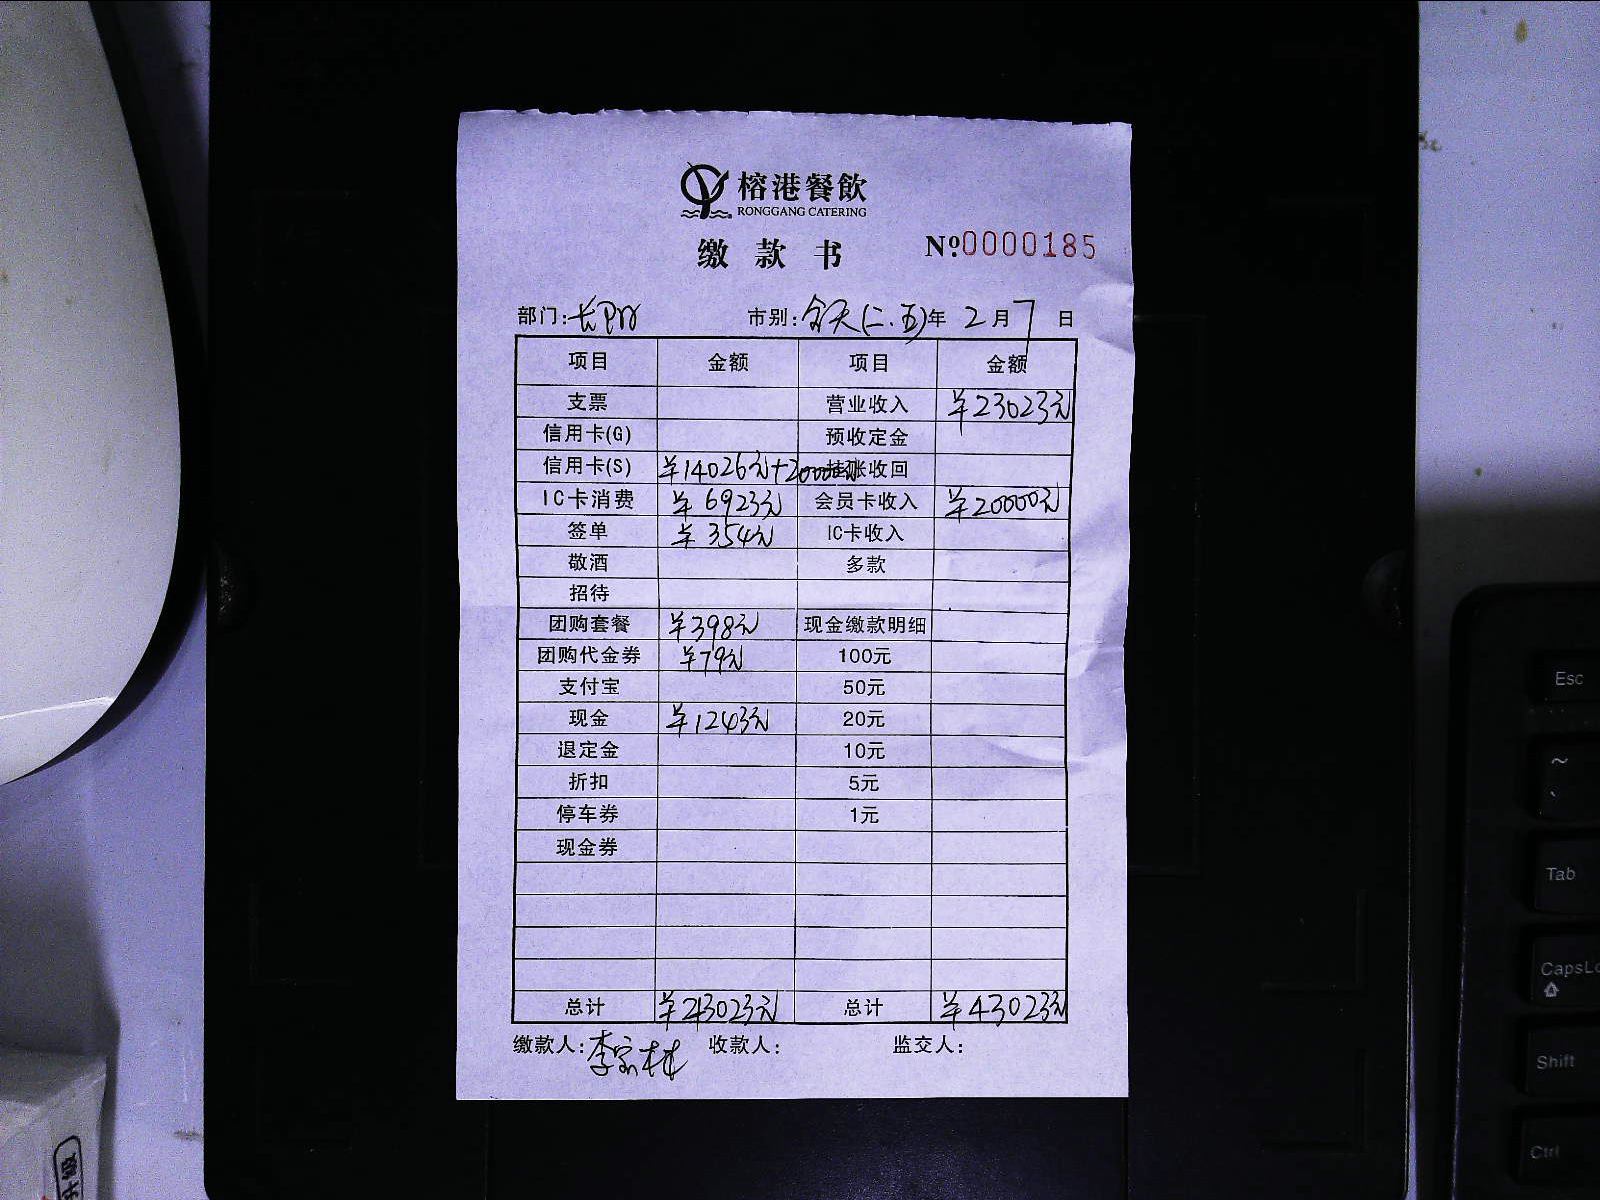 榕港餐飲
RONGGANG CATERING
缴款书 Nº0000185
部门: 市别:全天(二.五)年 2月7日
项目 金额 项目 金额
支票 营业收入 ¥23023元
信用卡(G) 预收定金
信用卡(S) ¥14026元+20000元 挂账收回
IC卡消费 ¥6923元 会员卡收入 ¥20000元
签单 ¥354元 IC卡收入
敬酒 多款
招待
团购套餐 ¥398元 现金缴款明细
团购代金券 ¥79元 100元
支付宝 50元
现金 ¥1243元 20元
退定金 10元
折扣 5元
停车券 1元
现金券
总计 ¥43023元 总计 ¥43023元
缴款人:李 林 收款人: 监交人:
Esc
~
`
Tab
CapsLo
Shift
Ctrl
升级